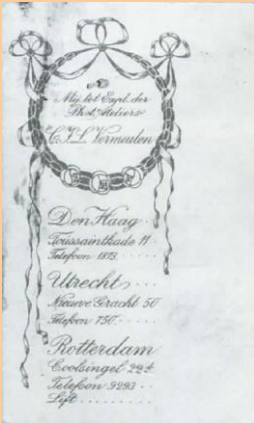 Mij. tot Expl. der
Phot. Ateliers
C.J.L. Vermeulen
Den Haag
Toussaintkade 11
Telefoon 1813
Utrecht
Nieuwe Gracht 50
Telefoon 750
Rotterdam
Coolsingel
Telefoon 9293
Lift